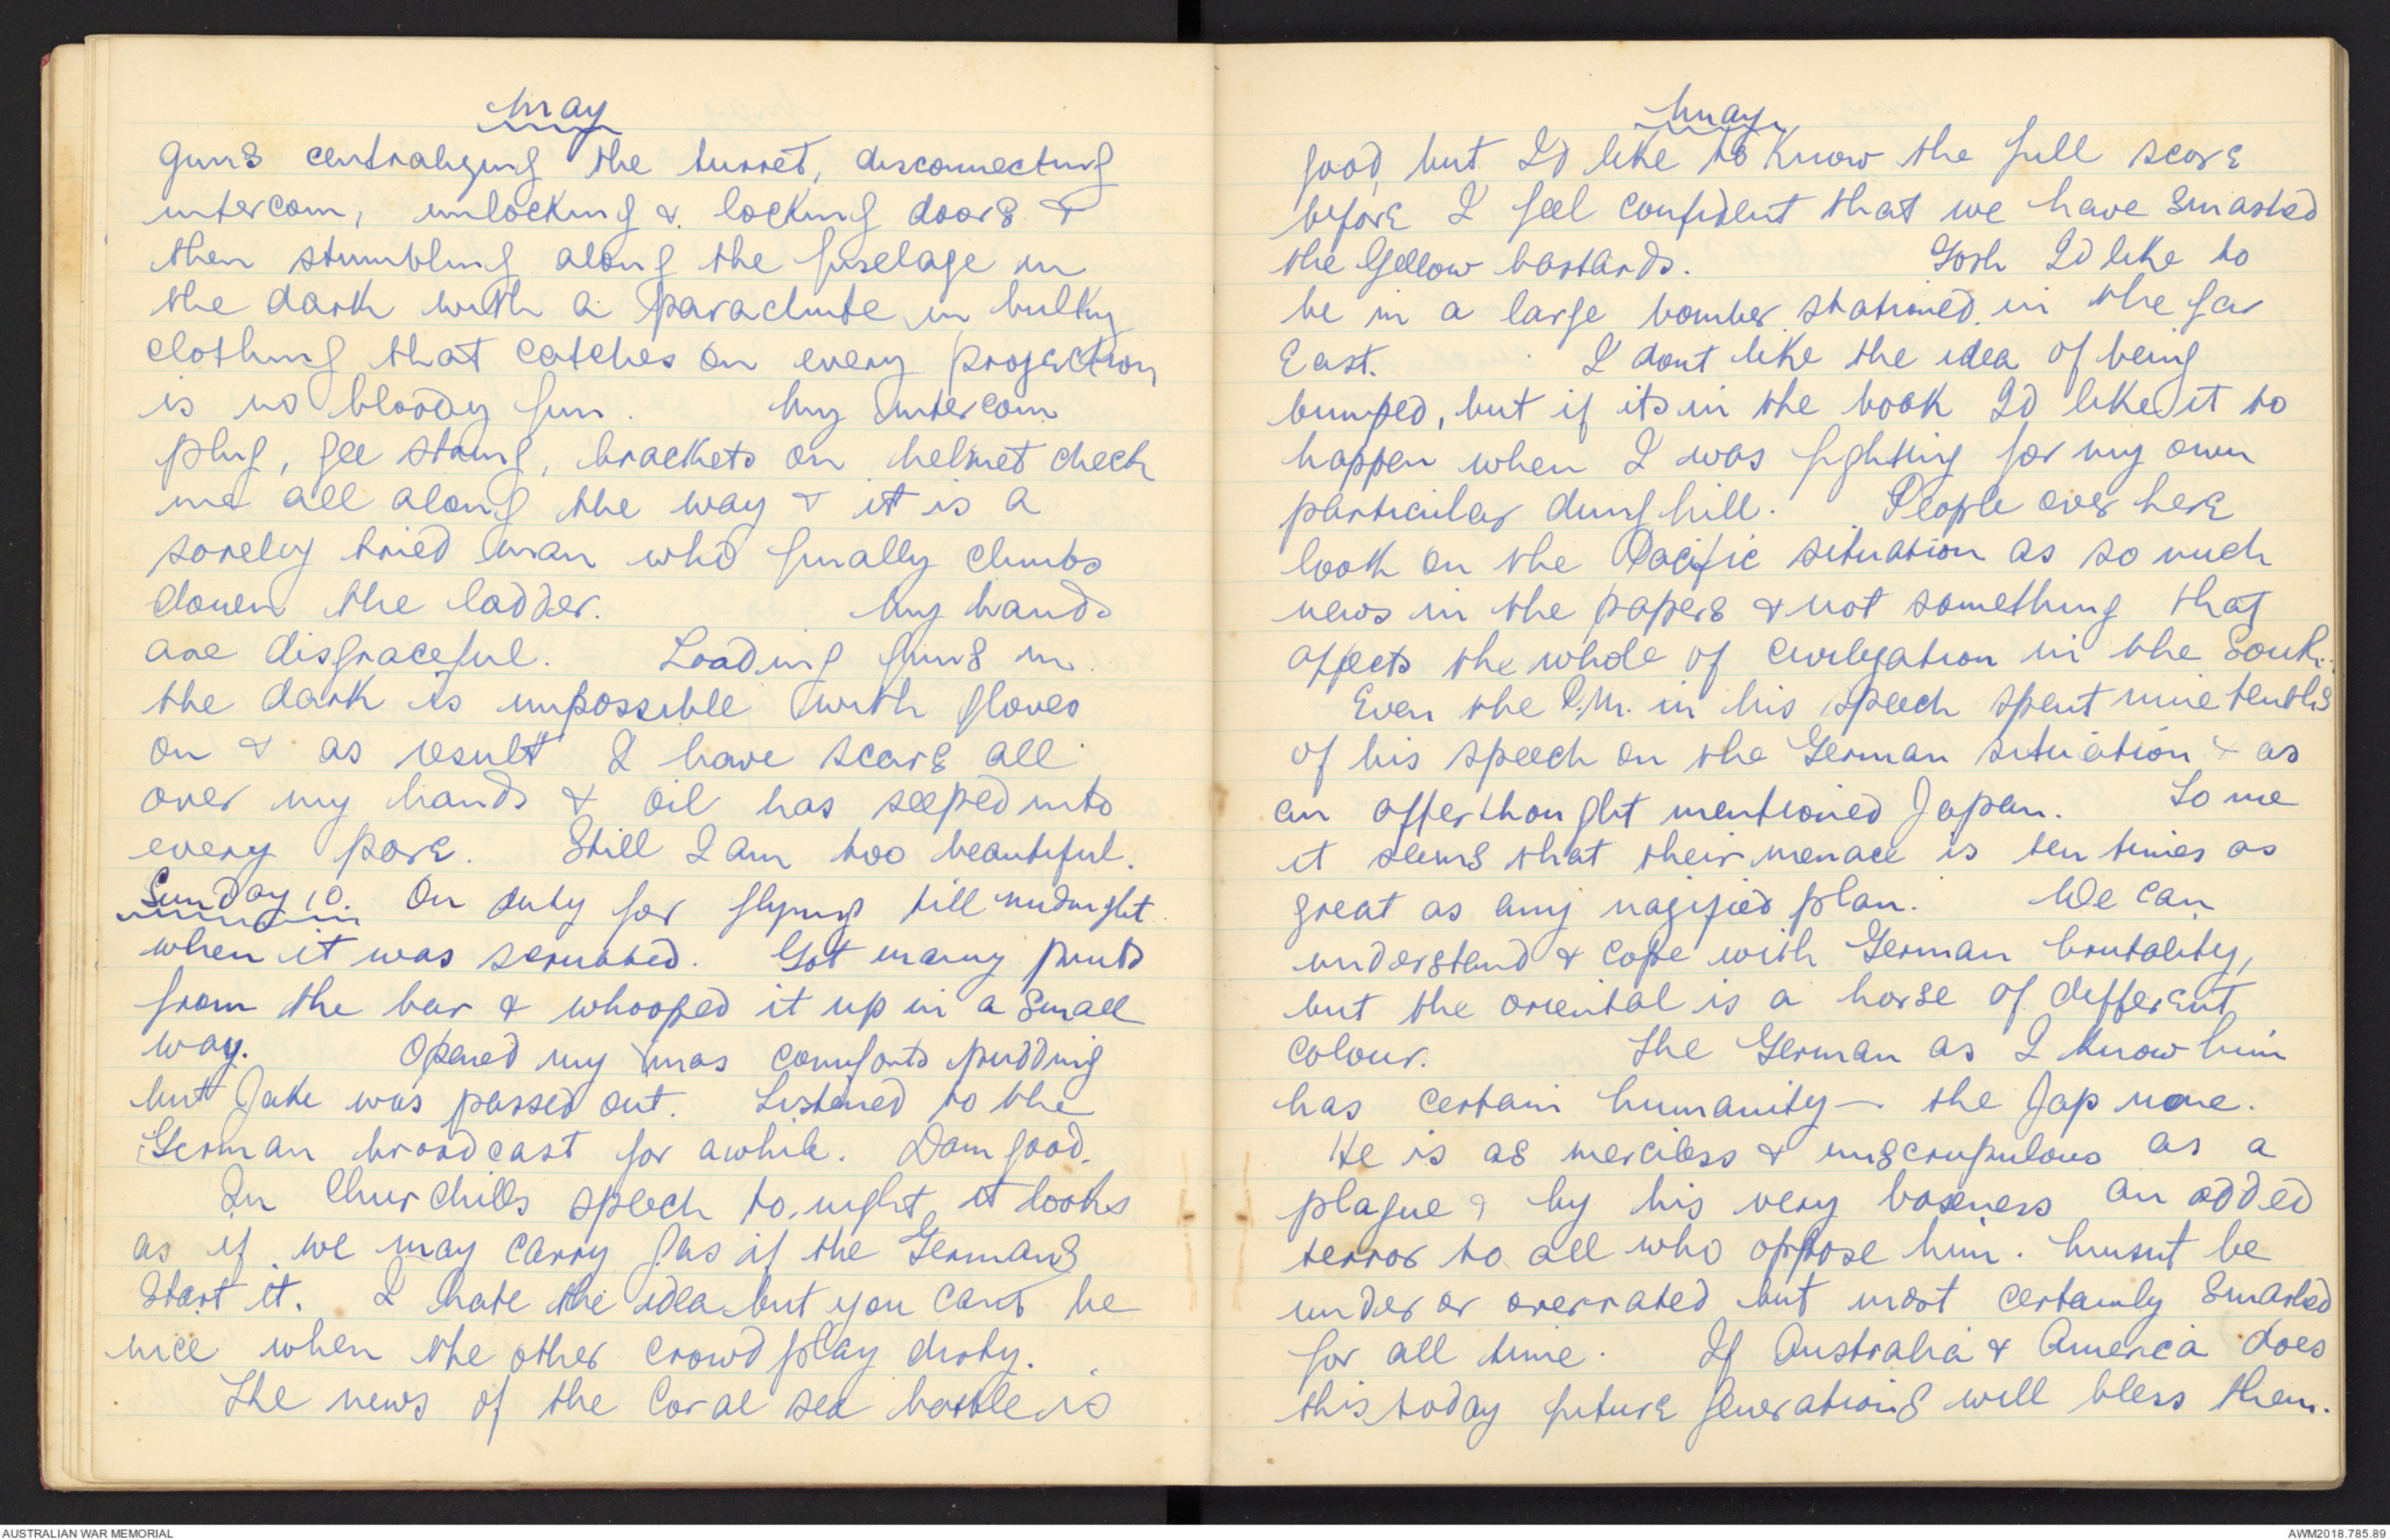 May
guns centralizing the turret, disconnecting
intercom, unlocking & locking doors &
then stumbling along the fuselage in
the dark with a parachute in bulky
clothing that catches on every projection
is no bloody fun. My intercom
plug, gee string, brackets on helmet check
me all along the way & it is a
sorely tried man who finally climbs
down the ladder. My hands
are disgraceful. Loading guns in
the dark is impossible with gloves
on & as result I have scars all
over my hands & oil has seeped into
every pore. Still I am too beautiful.
Sunday 10. On duty for flying till midnight
when it was scrubbed. Got many pints
from the bar & whooped it up in a small
way. Opened my Xmas comforts pudding
but Jake was passed out. Listened to the
German broadcast for awhile. Dam good.
In Churchills speech to.night it looks
as if we may carry gas if the Germans
start it. I hate the idea but you cant be
nice when the other crowd play dirty.
The news of the Coral sea battle is
May
good, but I'd like to know the full score
before I feel confident that we have smashed
the Yellow bastards. Gosh I'd like to
be in a large bomber stationed in the far
East. I dont like the idea of being
bumped, but if its in the book I'd like it to
happen when I was fighting for my own
particular dung hill. People over here
look on the Pacific situation as so much
news in the papers & not something that
affects the whole of civilization in the South.
Even the P.M. in his speech spent nine tenths
of his speech on the German situation & as
an afterthought mentioned Japan. To me
it seems that their menace is ten times as
great as any nazified plan. We can
understand & cope with German brutality,
but the oriental is a horse of different
colour. The German as I know him
has certain humanity — the Jap none.
He is as merciless & unscrupulous as a
plague & by his very baseness an added
terror to all who oppose him. Musnt be
under or overrated but most certainly smashed
for all time. If Australia & America does
this today future generations will bless them.
AUSTRALIAN WAR MEMORIAL
AWM2018.785.89